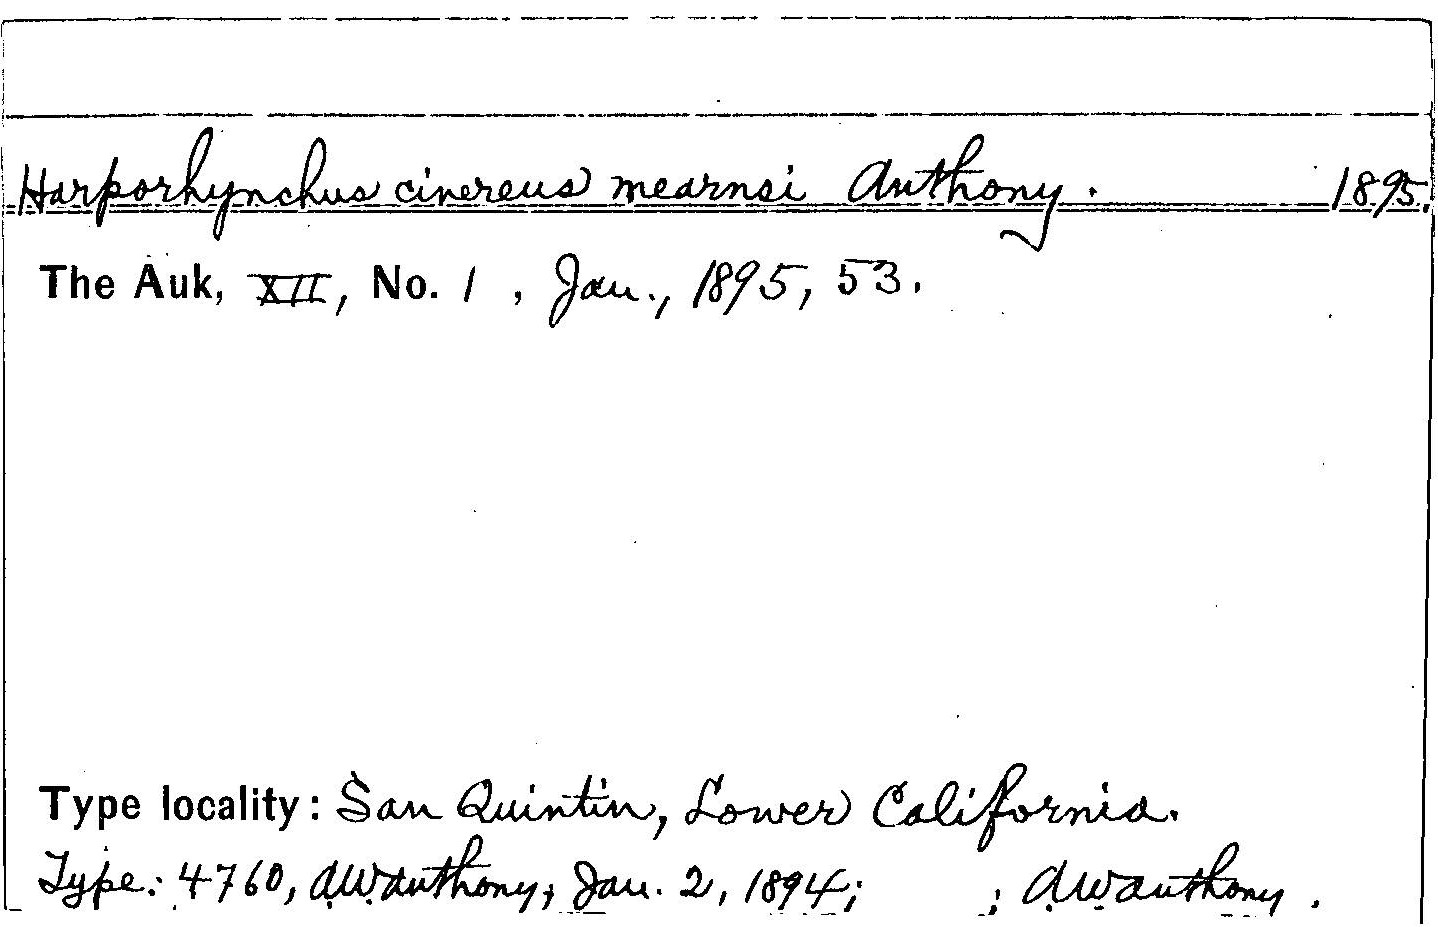 Harporhynchus cinereus mearnsi Anthony. 1895.
The Auk, XII, No. 1, Jan., 1895, 53.
Type locality: San Quintin, Lower California.
Type: 4760, A.W. Anthony; Jan. 2, 1894; ; A.W. Anthony.